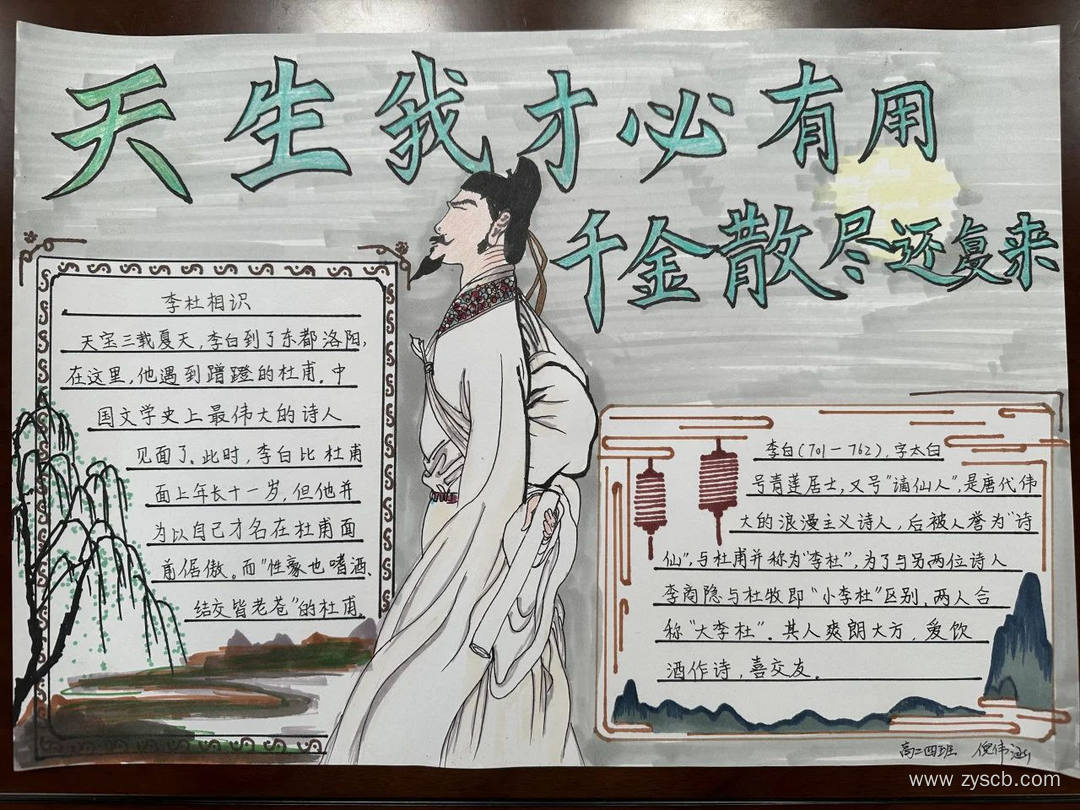 天生我才必有用
千金散尽还复来
李杜相识
天宝三载夏天,李白到了东都洛阳,
在这里,他遇到蹭蹬的杜甫.中
国文学史上最伟大的诗人
见面了.此时,李白比杜甫
面上年长十一岁,但他并
为以自己才名在杜甫面
前倨傲。而“性豪也嗜酒、
结交皆老苍”的杜甫.
李白(701—762),字太白
号青莲居士,又号“谪仙人”,是唐代伟
大的浪漫主义诗人,后被人誉为“诗
仙”,与杜甫并称为“李杜”,为了与另两位诗人
李商隐与杜牧即“小李杜”区别,两人合
称“大李杜”.其人爽朗大方,爱饮
酒作诗,喜交友.
高二四班 倪伟涵
www.zyscb.com